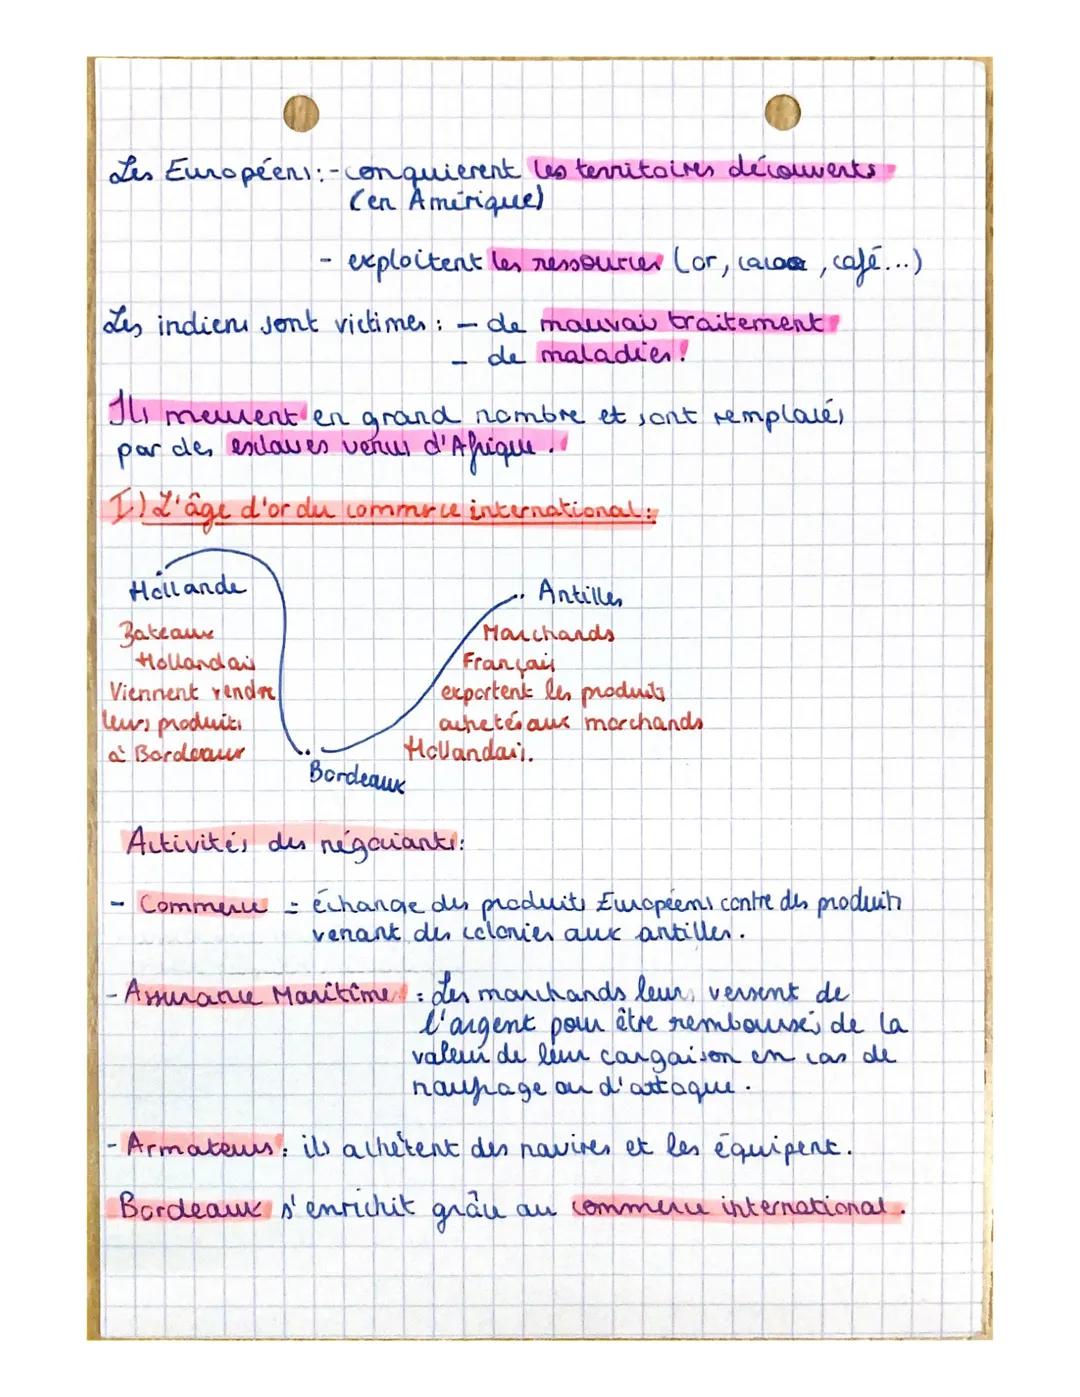 Les Européens : - conquierent les territoires découverts
(en Amérique)
- exploitent les ressources (or, cacao, café...)
Les indiens sont victimes : - de mauvais traitement
- de maladies !
Ils meurent en grand nombre et sont remplacés
par des esclaves venus d'Afrique.
I) L'âge d'or du commerce international :
Hollande
Bateaux
Hollandais
Viennent vendre
leurs produits
à Bordeaux
Bordeaux
Antilles
Marchands
Français
exportent les produits
achetés aux marchands
Hollandais.
Activités des négociants :
- Commerce = échange des produits Européens contre des produits
venant des colonies aux antilles.
- Assurance Maritime : Les marchands leurs versent de
l'argent pour être remboursés de la
valeur de leur cargaison en cas de
naufrage ou d'attaque.
- Armateurs : ils achètent des navires et les équipent.
Bordeaux s'enrichit grâce au commerce international.